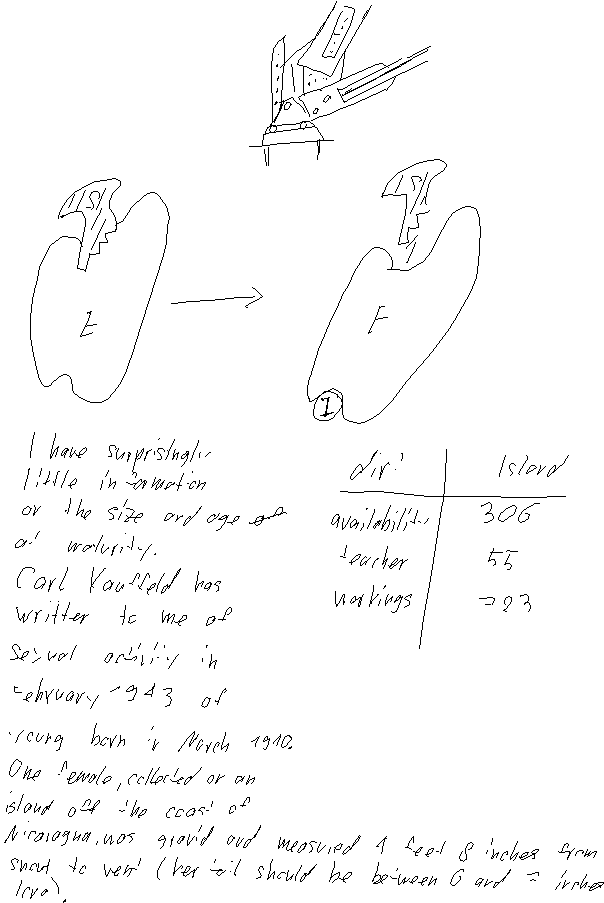 S
E
S
F
I
I have surprisingly
little information
on the size and age
at maturity.
Carl Kauffeld has
written to me of
sexual activity in
February 1943 of
young born in March 1940.
One female, collected on an
island off the coast of
Nicaragua, was gravid and measured 4 feet 8 inches from
snout to vent (her tail should be between 6 and 7 inches
long).
dirt Island
availability 306
teacher 55
workings 723